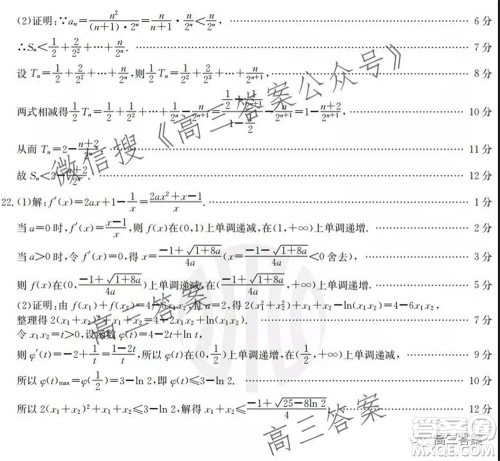 (2)证明:∵aₙ=n²/((n+1)·2ⁿ)=n/(n+1)·n/2ⁿ<n/2ⁿ, 6分
∴Sₙ<1/2+2/2²+…+n/2ⁿ. 7分
设Tₙ=1/2+2/2²+…+n/2ⁿ,则1/2Tₙ=1/2²+2/2³+…+n/2ⁿ⁺¹, 8分
两式相减得1/2Tₙ=1/2+1/2²+…+1/2ⁿ-n/2ⁿ⁺¹= =1-(n+2)/2ⁿ⁺¹, 10分
从而Tₙ=2-(n+2)/2ⁿ. 11分
故Sₙ<2-(n+2)/2ⁿ. 12分
22.(1)解:f′(x)=2ax+1-1/x=(2ax²+x-1)/x. 1分
当a=0时,f′(x)=(x-1)/x,则f(x)在(0,1)上单调递减,在(1,+∞)上单调递增. 2分
当a>0时,令f′(x)=0,得x=(-1+√(1+8a))/4a(x=(-1-√(1+8a))/4a<0舍去), 3分
则f(x)在(0,(-1+√(1+8a))/4a)上单调递减,在((-1+√(1+8a))/4a,+∞)上单调递增. 5分
(2)证明:由f(x₁)+f(x₂)=4-6x₁x₂,且a=2,得2(x₁²+x₂²)+x₁+x₂-ln(x₁x₂)=4-6x₁x₂,
整理得2(x₁+x₂)²+x₁+x₂=4-2x₁x₂+ln(x₁x₂). 7分
令x₁x₂=t>0,设函数φ(t)=4-2t+ln t,
则φ′(t)=-2+1/t=(1-2t)/t,所以φ(t)在(0,1/2)上单调递增,在(1/2,+∞)上单调递减, 9分
所以φ(t)max=φ(1/2)=3-ln 2,即φ(t)≤3-ln 2. 10分
所以2(x₁+x₂)²+x₁+x₂≤3-ln 2,解得x₁+x₂≤(-1+√(25-8ln2))/4. 12分
微信搜《高三答案公众号》
高三答案
高三答案
高三答案